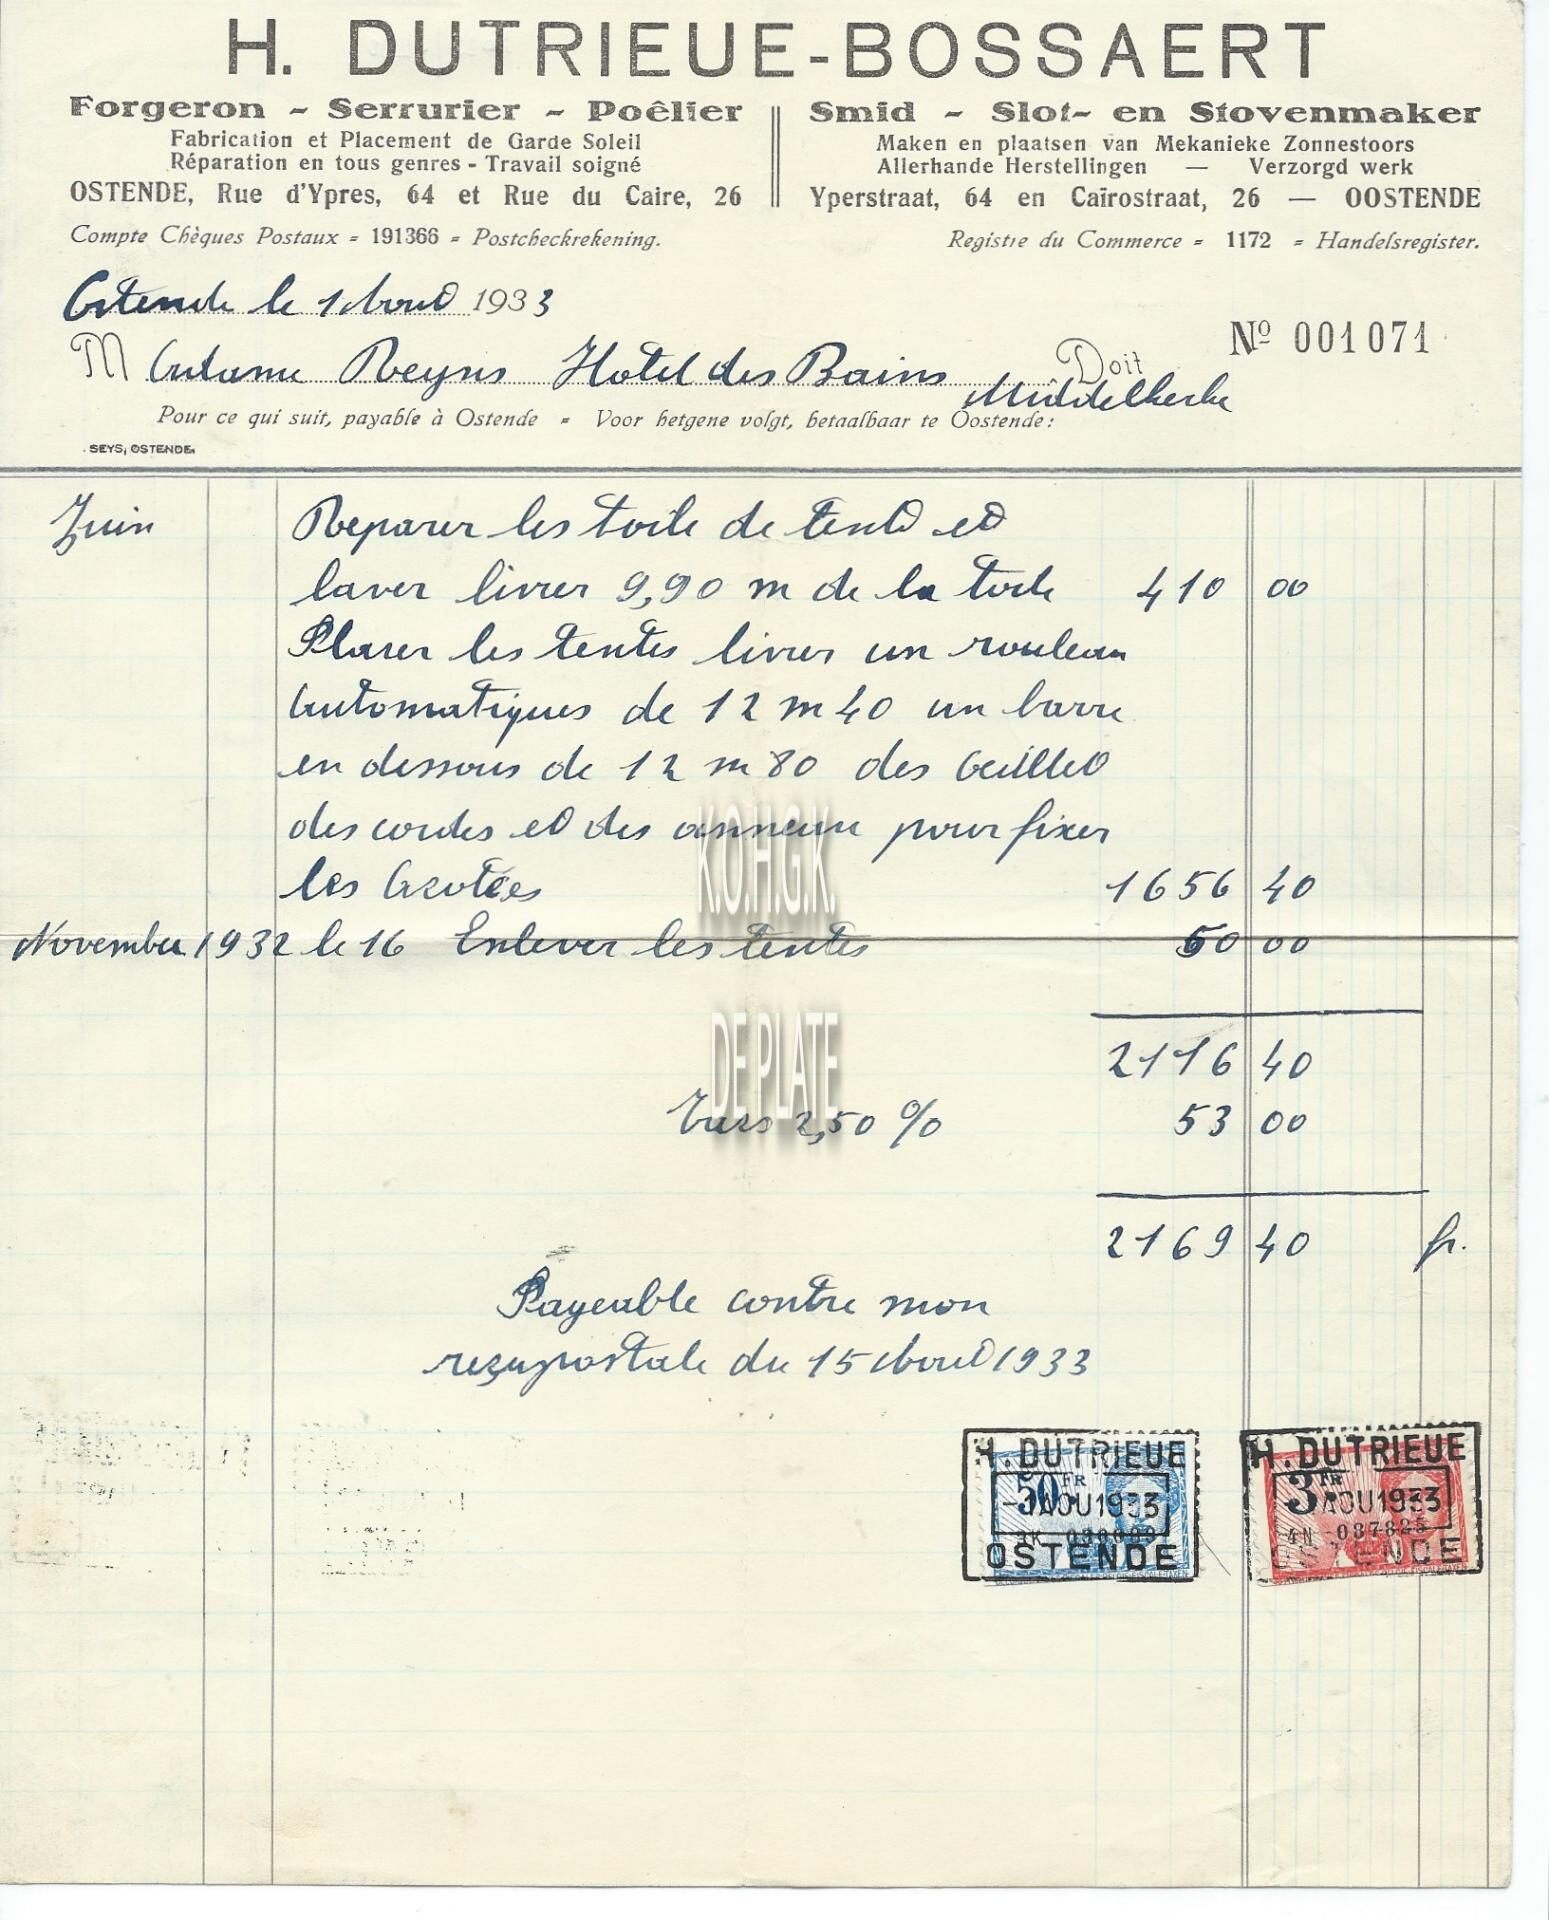 H. DUTRIEUE-BOSSAERT
Forgeron - Serrurier - Poêlier
Fabrication et Placement de Garde Soleil
Réparation en tous genres - Travail soigné
OSTENDE, Rue d'Ypres, 64 et Rue du Caire, 26
Smid - Slot- en Stovenmaker
Maken en plaatsen van Mekanieke Zonnestoors
Allerhande Herstellingen — Verzorgd werk
Yperstraat, 64 en Caïrostraat, 26 — OOSTENDE
Compte Chèques Postaux = 191366 = Postcheckrekening.
Registre du Commerce = 1172 = Handelsregister.
Ostende le 1 Aout 1933
Nº 001071
M Madame Reyns Hotel des Bains Doit
Middelkerke
Pour ce qui suit, payable à Ostende = Voor hetgene volgt, betaalbaar te Oostende:
SEYS, OSTENDE.
Juin Reparer les toile de tent et
laver livrer 9,90 m de la toile 410 00
Placer les tentes livrer un rouleau
automatiques de 12 m 40 un barre
en dessous de 12 m 80 des oeillet
des cordes et des anneau pour fixer
les 1656 40
November 1932 le 16 Enlever les tentes 50 00
K.O.H.G.K.
DE PLATE
2116 40
Taxs 2,50 % 53 00
2169 40 fr.
Payeable contre mon
reçu postale du 15 Aout 1933
H. DUTRIEUE
50 FR
-1 AOU 1933
OSTENDE
H. DUTRIEUE
3 FR
AOU 1933
4N 037825
OSTENDE